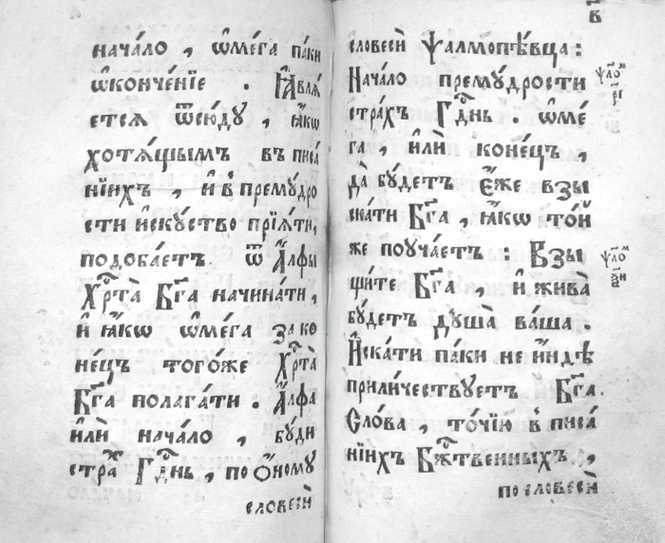 нача́ло , ѡ҆ме́га па́ки
ѡ҆конче́нїе . Ꙗ҆вля́
етсѧ ѿсю́дꙋ , ꙗ҆́кѡ
хотѧ́щымъ въ писа́
нїихъ , и҆ в̾ премꙋ́дро
сти и҆скꙋ́ство прїѧ́ти,
подоба́етъ ѿ А҆́лфы
Хрⷭ҇та̀ Бг҃а начина́ти ,
и҆ ꙗ҆́кѡ ѡ҆ме́га за ко
не́цъ тогѡ́же Хрⷭ҇та̀
Бг҃а полага́ти . А҆́лфа
и҆лѝ нача́ло , бꙋ́ди
стра́хъ Гдⷭ҇нь , по ѻ҆́номꙋ
словесѝ
в҃
словесѝ Ѱалмопѣ́вца :
Нача́ло премꙋ́дрости
стра́хъ Гдⷭ҇нь . ѡ҆ме́
га , и҆лѝ коне́цъ ,
да бꙋ́детъ є҆́же взы
ска́ти Бг҃а , ꙗ҆́кѡ то́й
же поꙋча́етъ : Взы
щи́те Бг҃а , и҆ жива̀
бꙋ́детъ дꙋша̀ ва́ша .
И҆ска́ти па́ки не и҆́ндѣ
прили́чествꙋетъ Бг҃а
Сло́ва , то́чїю в̾ писа́
нїихъ Бжⷭ҇твенныхъ ,
по словесѝ
ѱало́м
рі҃
ѱало́м